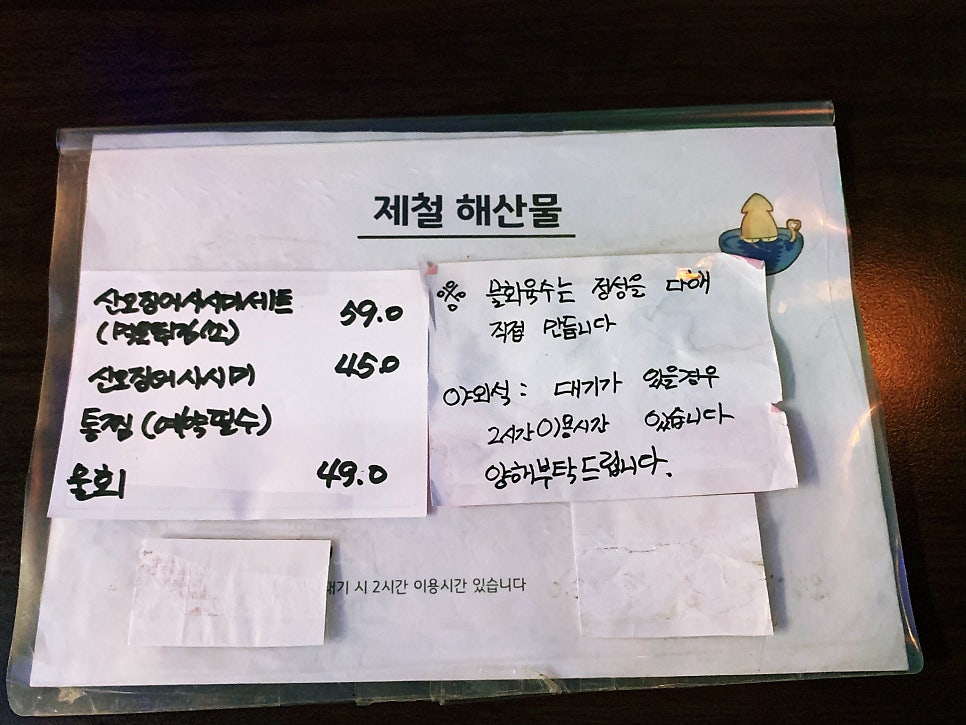 제철 해산물
산오징어사시미세트 59.0
산오징어사시미 45.0
통찜 (예약필수)
물회 49.0
※ 물회육수는 정성을 다해
직접 만듭니다
야외석 : 대기가 있을경우
2시간이용시간 있습니다
양해부탁드립니다.
대기 시 2시간 이용시간 있습니다